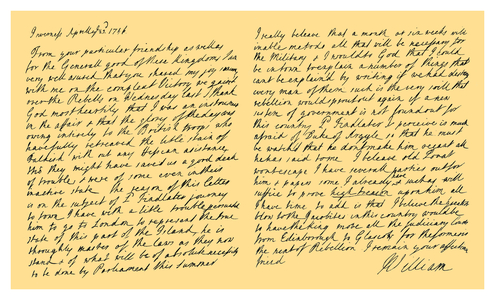 Inverness April ye 23d 1746
From your particular friendship as well as
for the Generall good of these Kingdoms I am
very well assured that you shared my joy
with me on the compleat Victory we gained
over the Rebells on Wednesday last I thank
God most heartily that I was an instrument
in the affair & that the glory of the day was
owing intirely to the British troops who
have fully retreaved the little stain of
Falkirk with out any Hessian assistance
tho they might have saved us a good deal
of trouble & were of some even in their
inactive state The reason of this letter
is on the subject of L Findlater's journey
to town I have with a little trouble persuaded
him to go to London to represent the true
state of this part of the Island, he is
thoroughly master of the laws as they now
stand & of what will be of absolute necessity
to be done by Parliament this summer
I really believe that a month or six weeks will
enable methods all that will be necessary for
the Military & I would to God that I could
be in town to explain a number of things that
cant be explained by writing if we had destroy
every man of them such is the very soil that
rebellion would sprout out again if a new
system of government is not found out for
this country Ld Findlater I perceive is much
afraid of Duke of Argyle so that he must
be watched that he dont make him vegat all
he has said to me I believe old Lovat
wont escape I have severall parties out for
him & papers some I already have & such as will
suffice to prove high treason upon him all
I have time to add is that I believe the greatest
blow to the Jacobites in this country would be
to have the king move all the Judiciary Courts
from Edinborough to Glasgow for the former is
the nest of Rebellion I remain your affectionate
friend
William